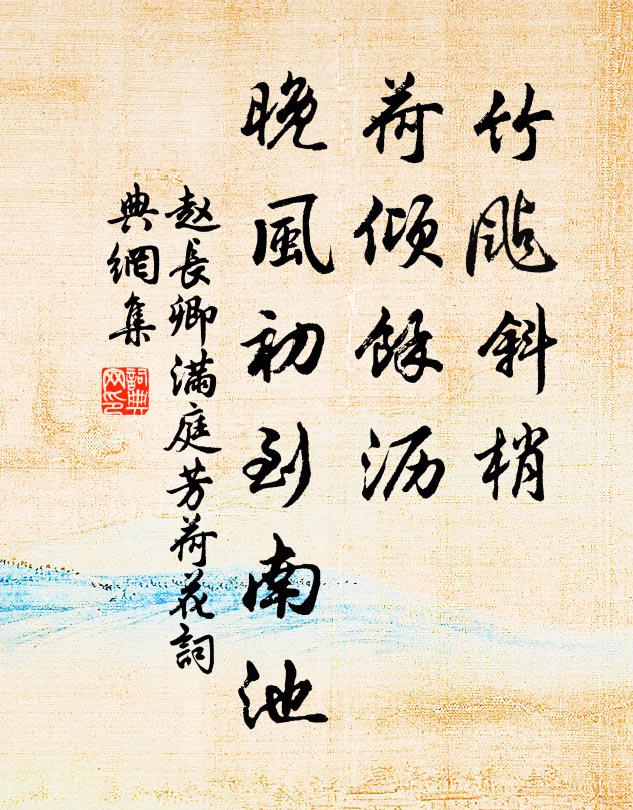 竹飐斜梢
荷倾馀沥
晚風初到南池
赵長卿满庭芳荷花詞
典網集
詞典網印